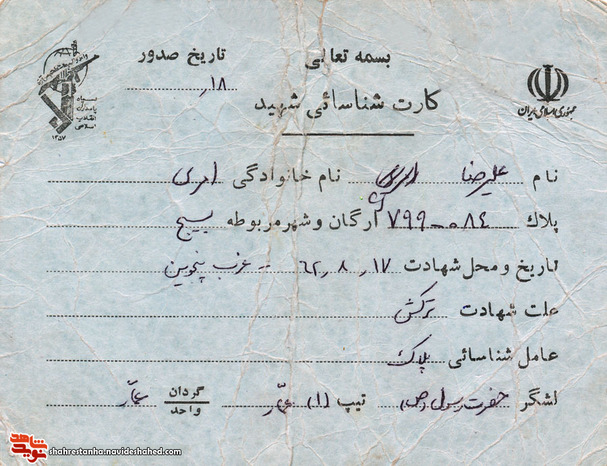 بسمه تعالی
تاریخ صدور
۱۸ر
کارت شناسائی شهید
جمهوری اسلامی ایران
سپاه پاسداران انقلاب اسلامی
۱۳۵۷
نام علیرضا نام خانوادگی امری
پلاک ۰۸۴-۷۹۹ ارگان و شهر مربوطه بسیج
تاریخ و محل شهادت ۱۷ر۸ر۶۲ -- غرب پنجوین
علت شهادت ترکش
عامل شناسائی پلاک
لشگر حضرت رسول (ص) تیپ (۱) عمّار گردان واحد عمّار
شاهد نوید
shahrestanha.navideshahed.com